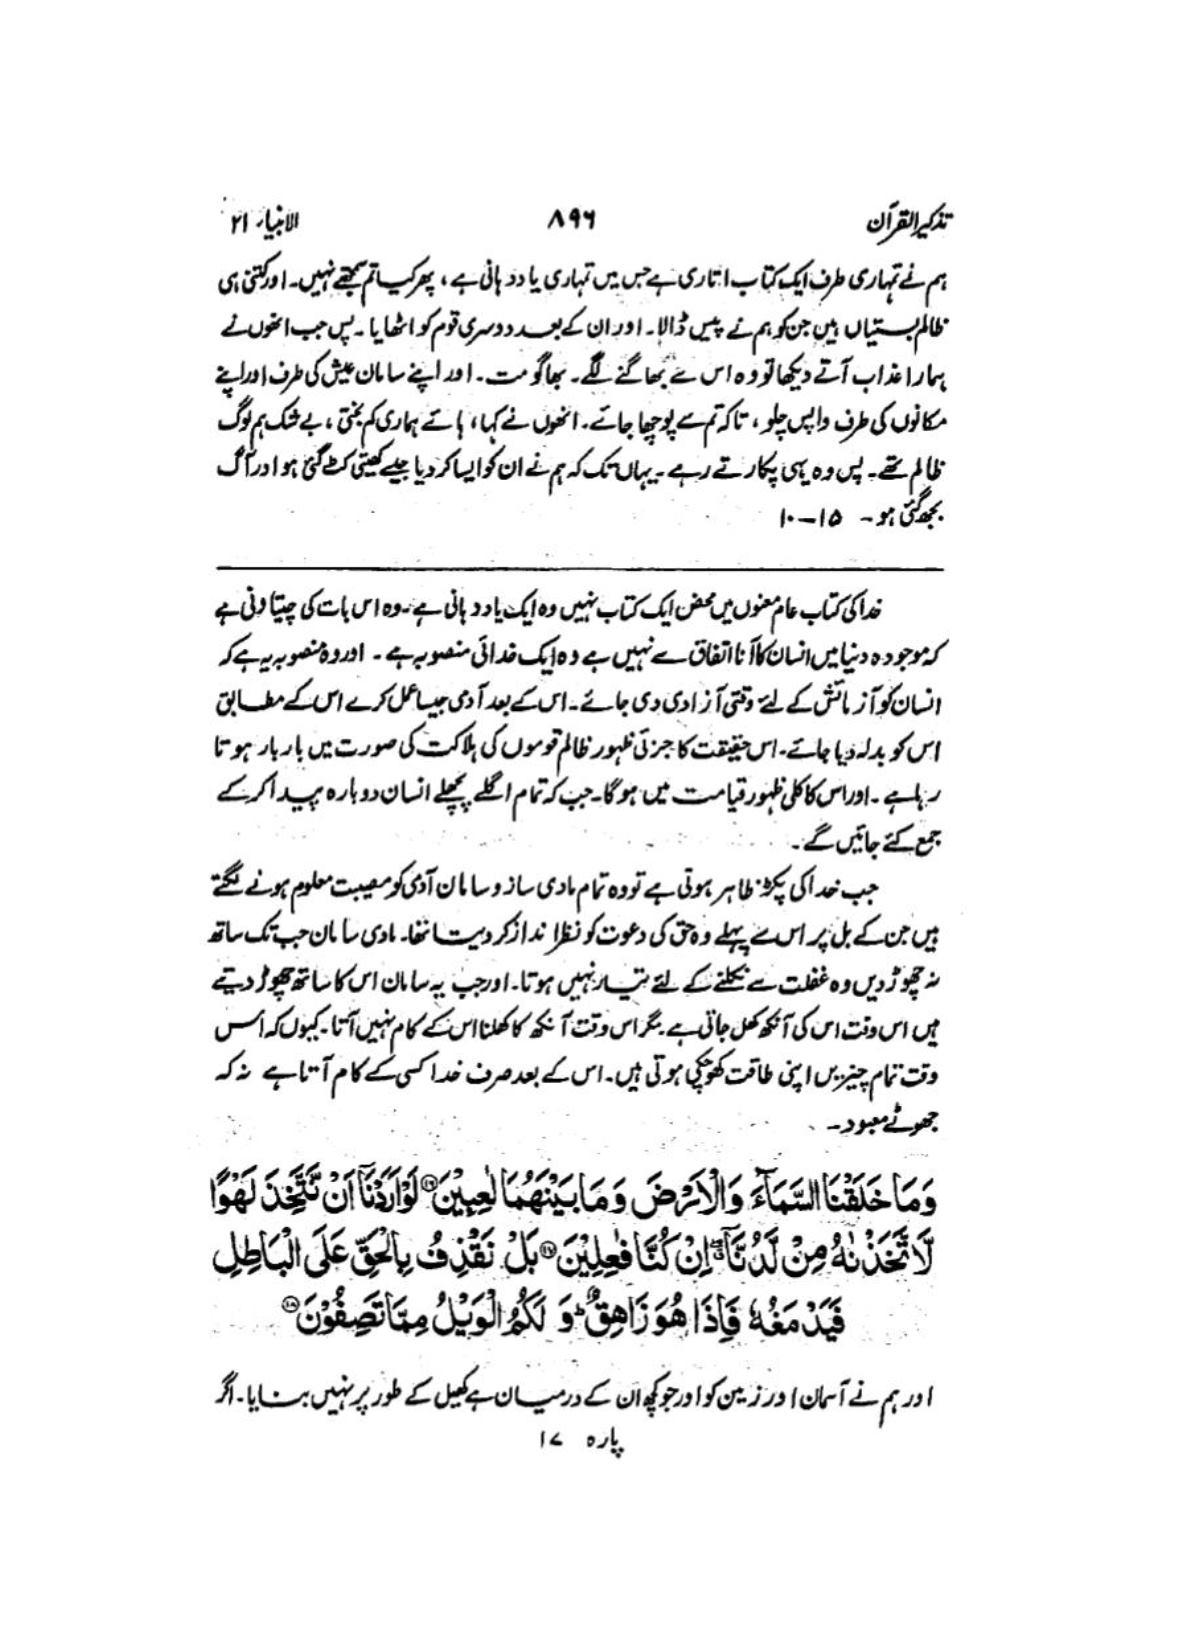 تذکیر القرآن ۸۹۶ الانبیاء ۲۱
ہم نے تمہاری طرف ایک کتاب اتاری ہے جس میں تمہاری یاد دہانی ہے، پھر کیا تم سمجھتے نہیں۔ اور کتنی ہی
ظالم بستیاں ہیں جن کو ہم نے پیس ڈالا۔ اور ان کے بعد دوسری قوم کو اٹھایا۔ پس جب انھوں نے
ہمارا عذاب آتے دیکھا تو وہ اس سے بھاگنے لگے۔ بھاگو مت۔ اور اپنے سامان عیش کی طرف اور اپنے
مکانوں کی طرف واپس چلو، تاکہ تم سے پوچھا جائے۔ انھوں نے کہا، ہائے ہماری کم بختی، بے شک ہم لوگ
ظالم تھے۔ پس وہ یہی پکارتے رہے۔ یہاں تک کہ ہم نے ان کو ایسا کر دیا جیسے کھیتی کٹ گئی ہو اور آگ
بجھ گئی ہو۔ ۱۵-۱۰
خدا کی کتاب عام معنوں میں محض ایک کتاب نہیں وہ ایک یاد دہانی ہے۔ وہ اس بات کی چیتاونی ہے
کہ موجودہ دنیا میں انسان کا آنا اتفاق سے نہیں ہے وہ ایک خدائی منصوبہ ہے۔ اور وہ منصوبہ یہ ہے کہ
انسان کو آزمائش کے لئے وقتی آزادی دی جائے۔ اس کے بعد آدمی جیسا عمل کرے اس کے مطابق
اس کو بدلہ دیا جائے۔ اس حقیقت کا جزئی ظہور ظالم قوموں کی ہلاکت کی صورت میں بار بار ہوتا
رہا ہے۔ اور اس کا کلی ظہور قیامت میں ہوگا۔ جب کہ تمام اگلے پچھلے انسان دوبارہ پیدا کر کے
جمع کئے جائیں گے۔
جب خدا کی پکڑ ظاہر ہوتی ہے تو وہ تمام مادی ساز و سامان آدمی کو مصیبت معلوم ہونے لگتے
ہیں جن کے بل پر اس سے پہلے وہ حق کی دعوت کو نظر انداز کر دیتا تھا۔ مادی سامان جب تک ساتھ
نہ چھوڑ دیں وہ غفلت سے نکلنے کے لئے تیار نہیں ہوتا۔ اور جب یہ سامان اس کا ساتھ چھوڑ دیتے
ہیں اس وقت اس کی آنکھ کھل جاتی ہے۔ مگر اس وقت آنکھ کا کھلنا اس کے کام نہیں آتا۔ کیوں کہ اس
وقت تمام چیزیں اپنی طاقت کھو چکی ہوتی ہیں۔ اس کے بعد صرف خدا کسی کے کام آتا ہے نہ کہ
جھوٹے معبود۔
وَمَا خَلَقْنَا السَّمَآءَ وَالْاَرْضَ وَمَا بَيْنَهُمَا لٰعِبِيْنَ ﴿۱۶﴾ لَوْ اَرَدْنَآ اَنْ نَّتَّخِذَ لَهْوًا
لَّا تَّخَذْنٰهُ مِنْ لَّدُنَّآ ۖ اِنْ كُنَّا فٰعِلِيْنَ ﴿۱۷﴾ بَلْ نَقْذِفُ بِالْحَقِّ عَلَى الْبَاطِلِ
فَيَدْمَغُهٗ فَاِذَا هُوَ زَاهِقٌ ؕ وَ لَكُمُ الْوَيْلُ مِمَّا تَصِفُوْنَ ﴿۱۸﴾
اور ہم نے آسمان اور زمین کو اور جو کچھ ان کے درمیان ہے کھیل کے طور پر نہیں بنایا۔ اگر
پارہ ۱۷